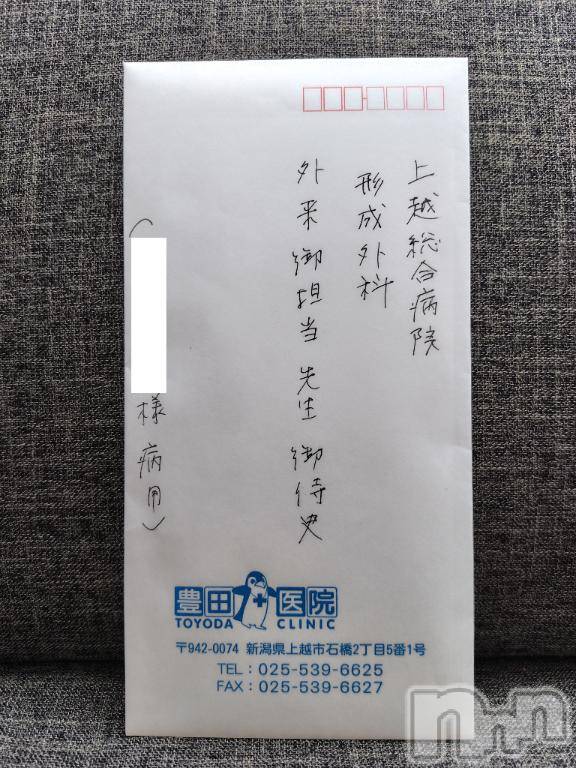 上越総合病院
形成外科
外来 御担当 先生 御侍史
(
様 病用)
豊田医院
TOYODA CLINIC
〒942-0074 新潟県上越市石橋2丁目5番1号
TEL:025-539-6625
FAX:025-539-6627
nxn